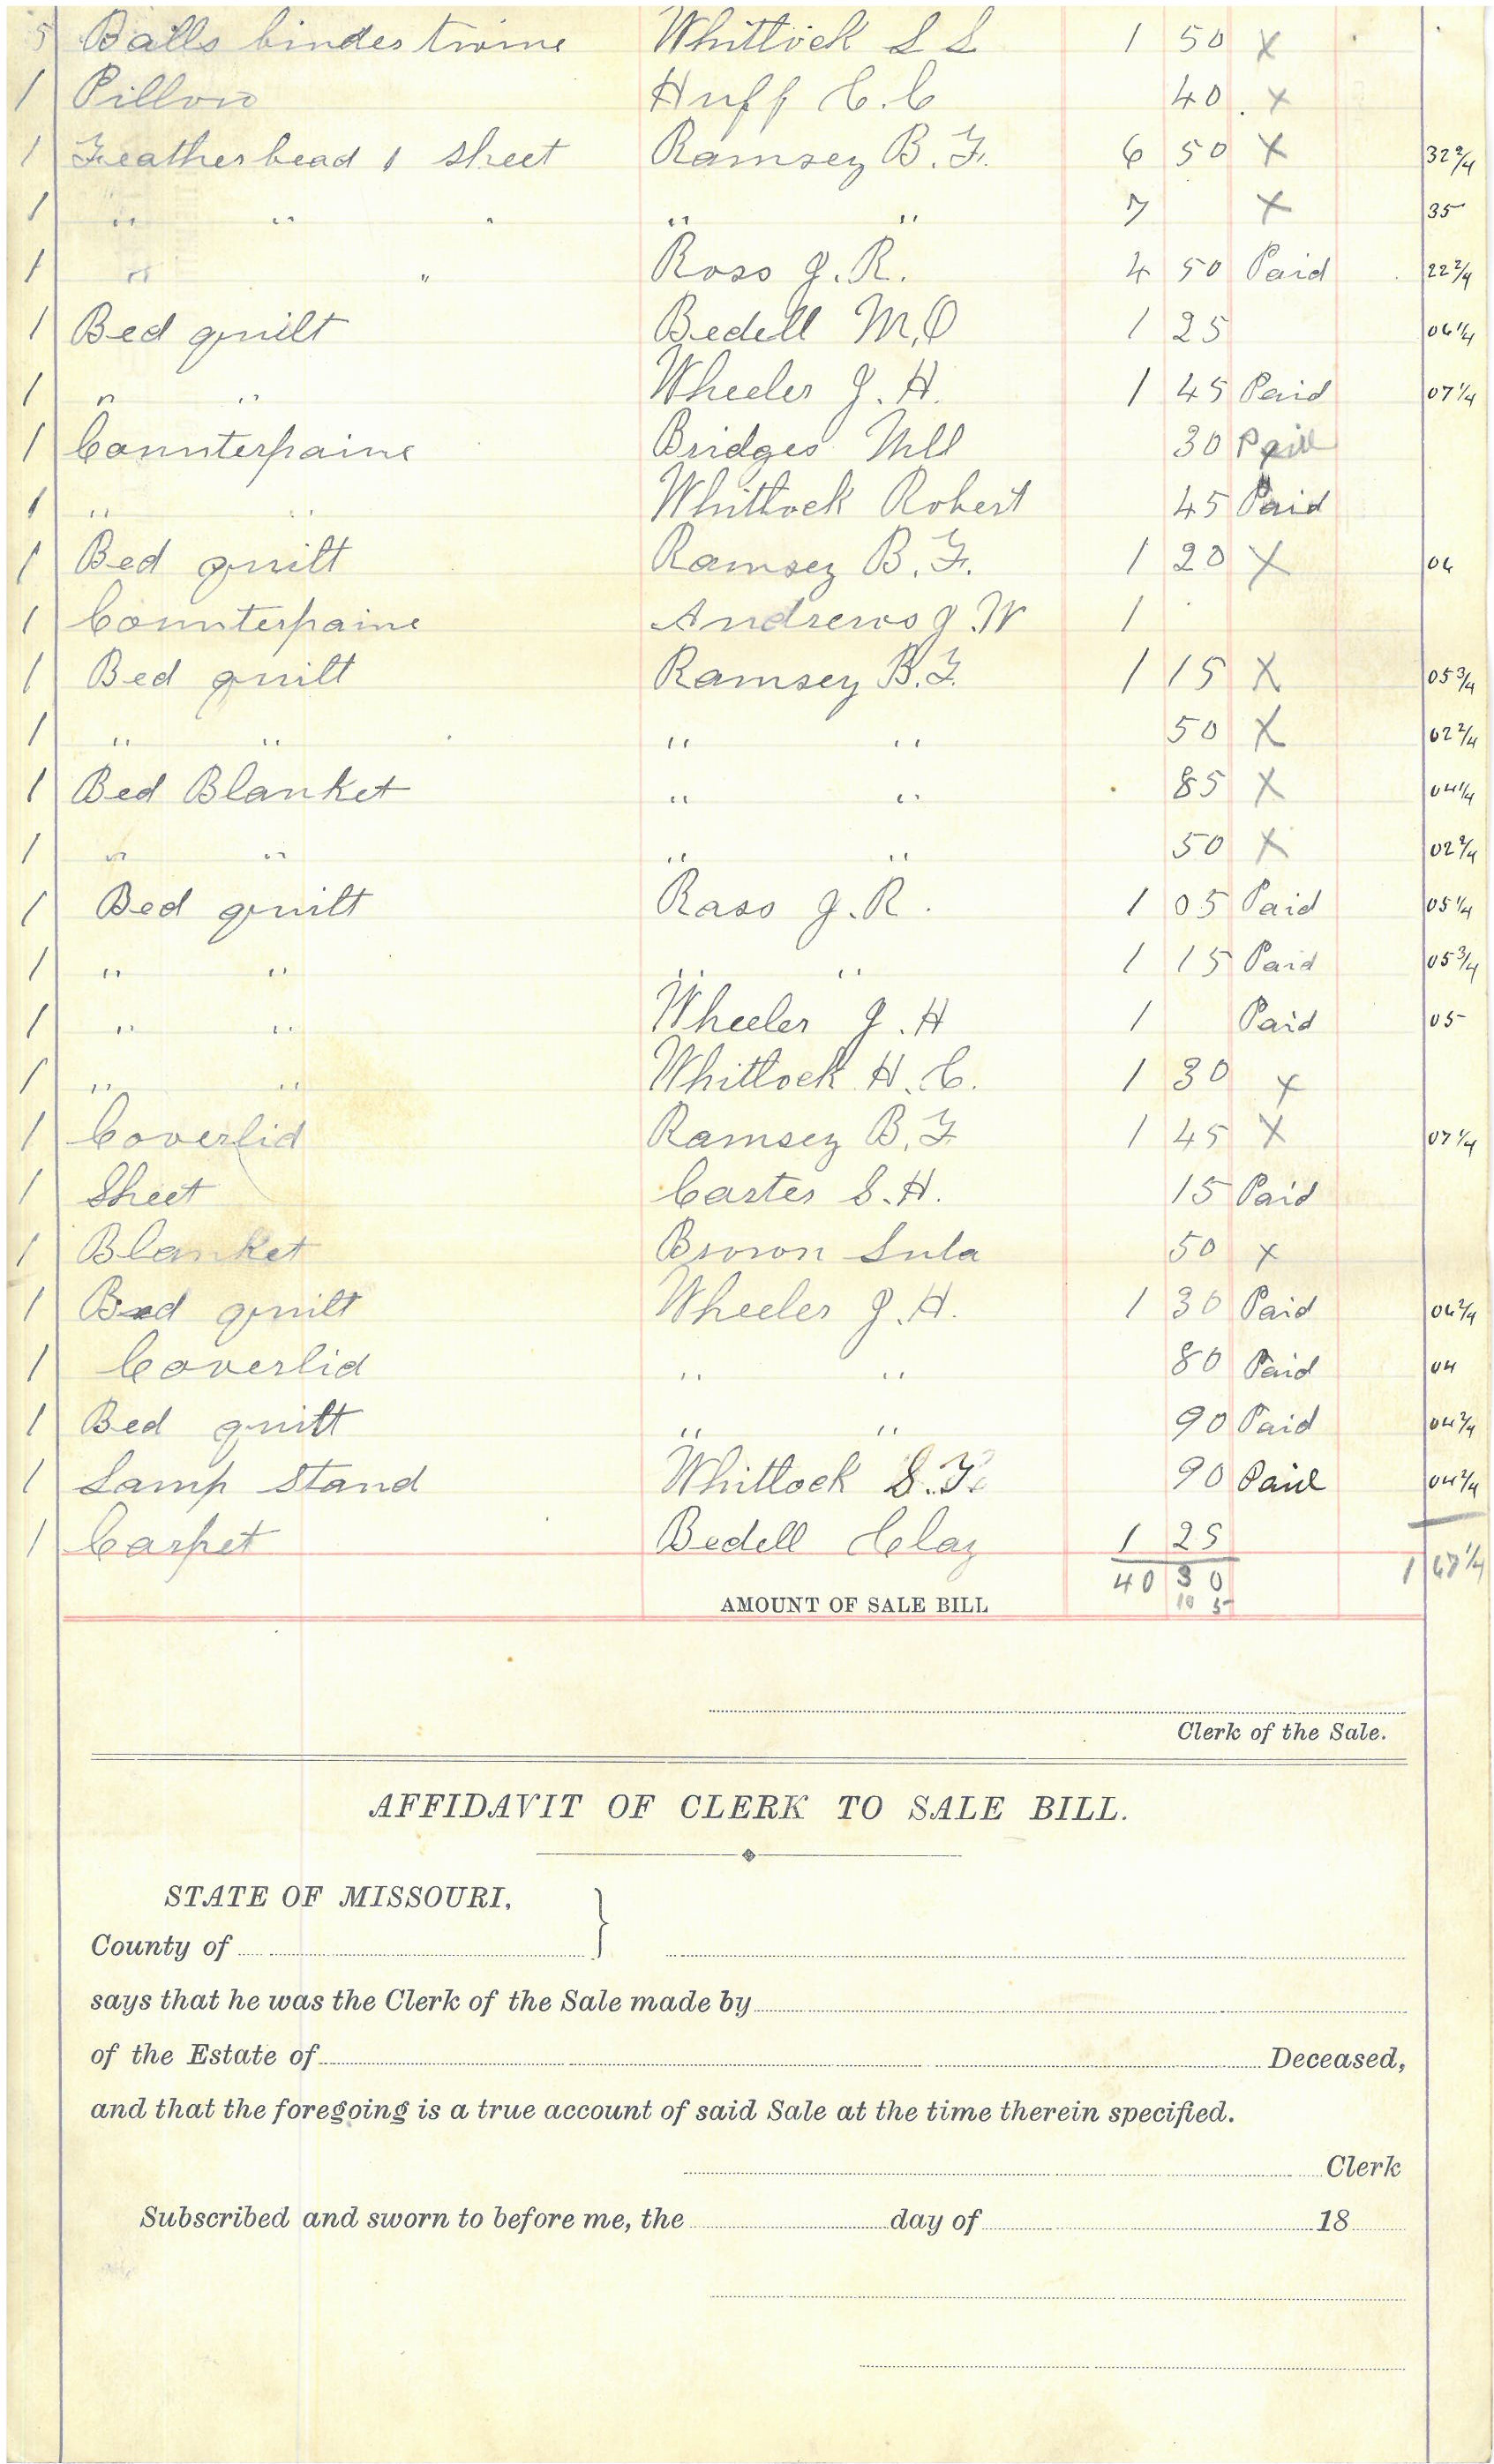 5 Balls binder twine Whitlock S S 1 50 x
1 Pillow Huff C.C 40 x
1 Featherbead 1 sheet Ramsey B.F. 6 50 x 32 2/4
1 " " " " " 7 x 35
1 " " Ross J.R. 4 50 Paid 22 2/4
1 Bed quilt Bedell M,O 1 25 06 1/4
1 " " Wheeler J.H. 1 45 Paid 07 1/4
1 Counterpaine Bridges Mll 30 Paid
1 " " Whitlock Robert 45 Paid
1 Bed quilt Ramsey B.F. 1 20 x 06
1 Counterpaine Andrews J W 1
1 Bed quilt Ramsey B.F. 1 15 x 05 3/4
1 " " " " 50 x 02 2/4
1 Bed Blanket " " 85 x 04 1/4
1 " " " " 50 x 02 2/4
1 Bed quilt Ross J.R. 1 05 Paid 05 1/4
1 " " " " 1 15 Paid 05 3/4
1 " " Wheeler J.H 1 Paid 05
1 " " Whitlock H.C. 1 30 x
1 Coverlid Ramsey B.F 1 45 x 07 1/4
1 Sheet Carter S.H. 15 Paid
1 Blanket Brown Lula 50 x
1 Bed quilt Wheeler J.H. 1 30 Paid 06 2/4
1 Coverlid " " 80 Paid 04
1 Bed quilt " " 90 Paid 04 2/4
1 Lamp Stand Whitlock S.F. 90 Paid 04 2/4
1 Carpet Bedell Clay 1 25
40 30 1 67 1/4
AMOUNT OF SALE BILL 10 5
Clerk of the Sale.
AFFIDAVIT OF CLERK TO SALE BILL.
STATE OF MISSOURI,
County of
says that he was the Clerk of the Sale made by
of the Estate of Deceased,
and that the foregoing is a true account of said Sale at the time therein specified.
Clerk
Subscribed and sworn to before me, the day of 18